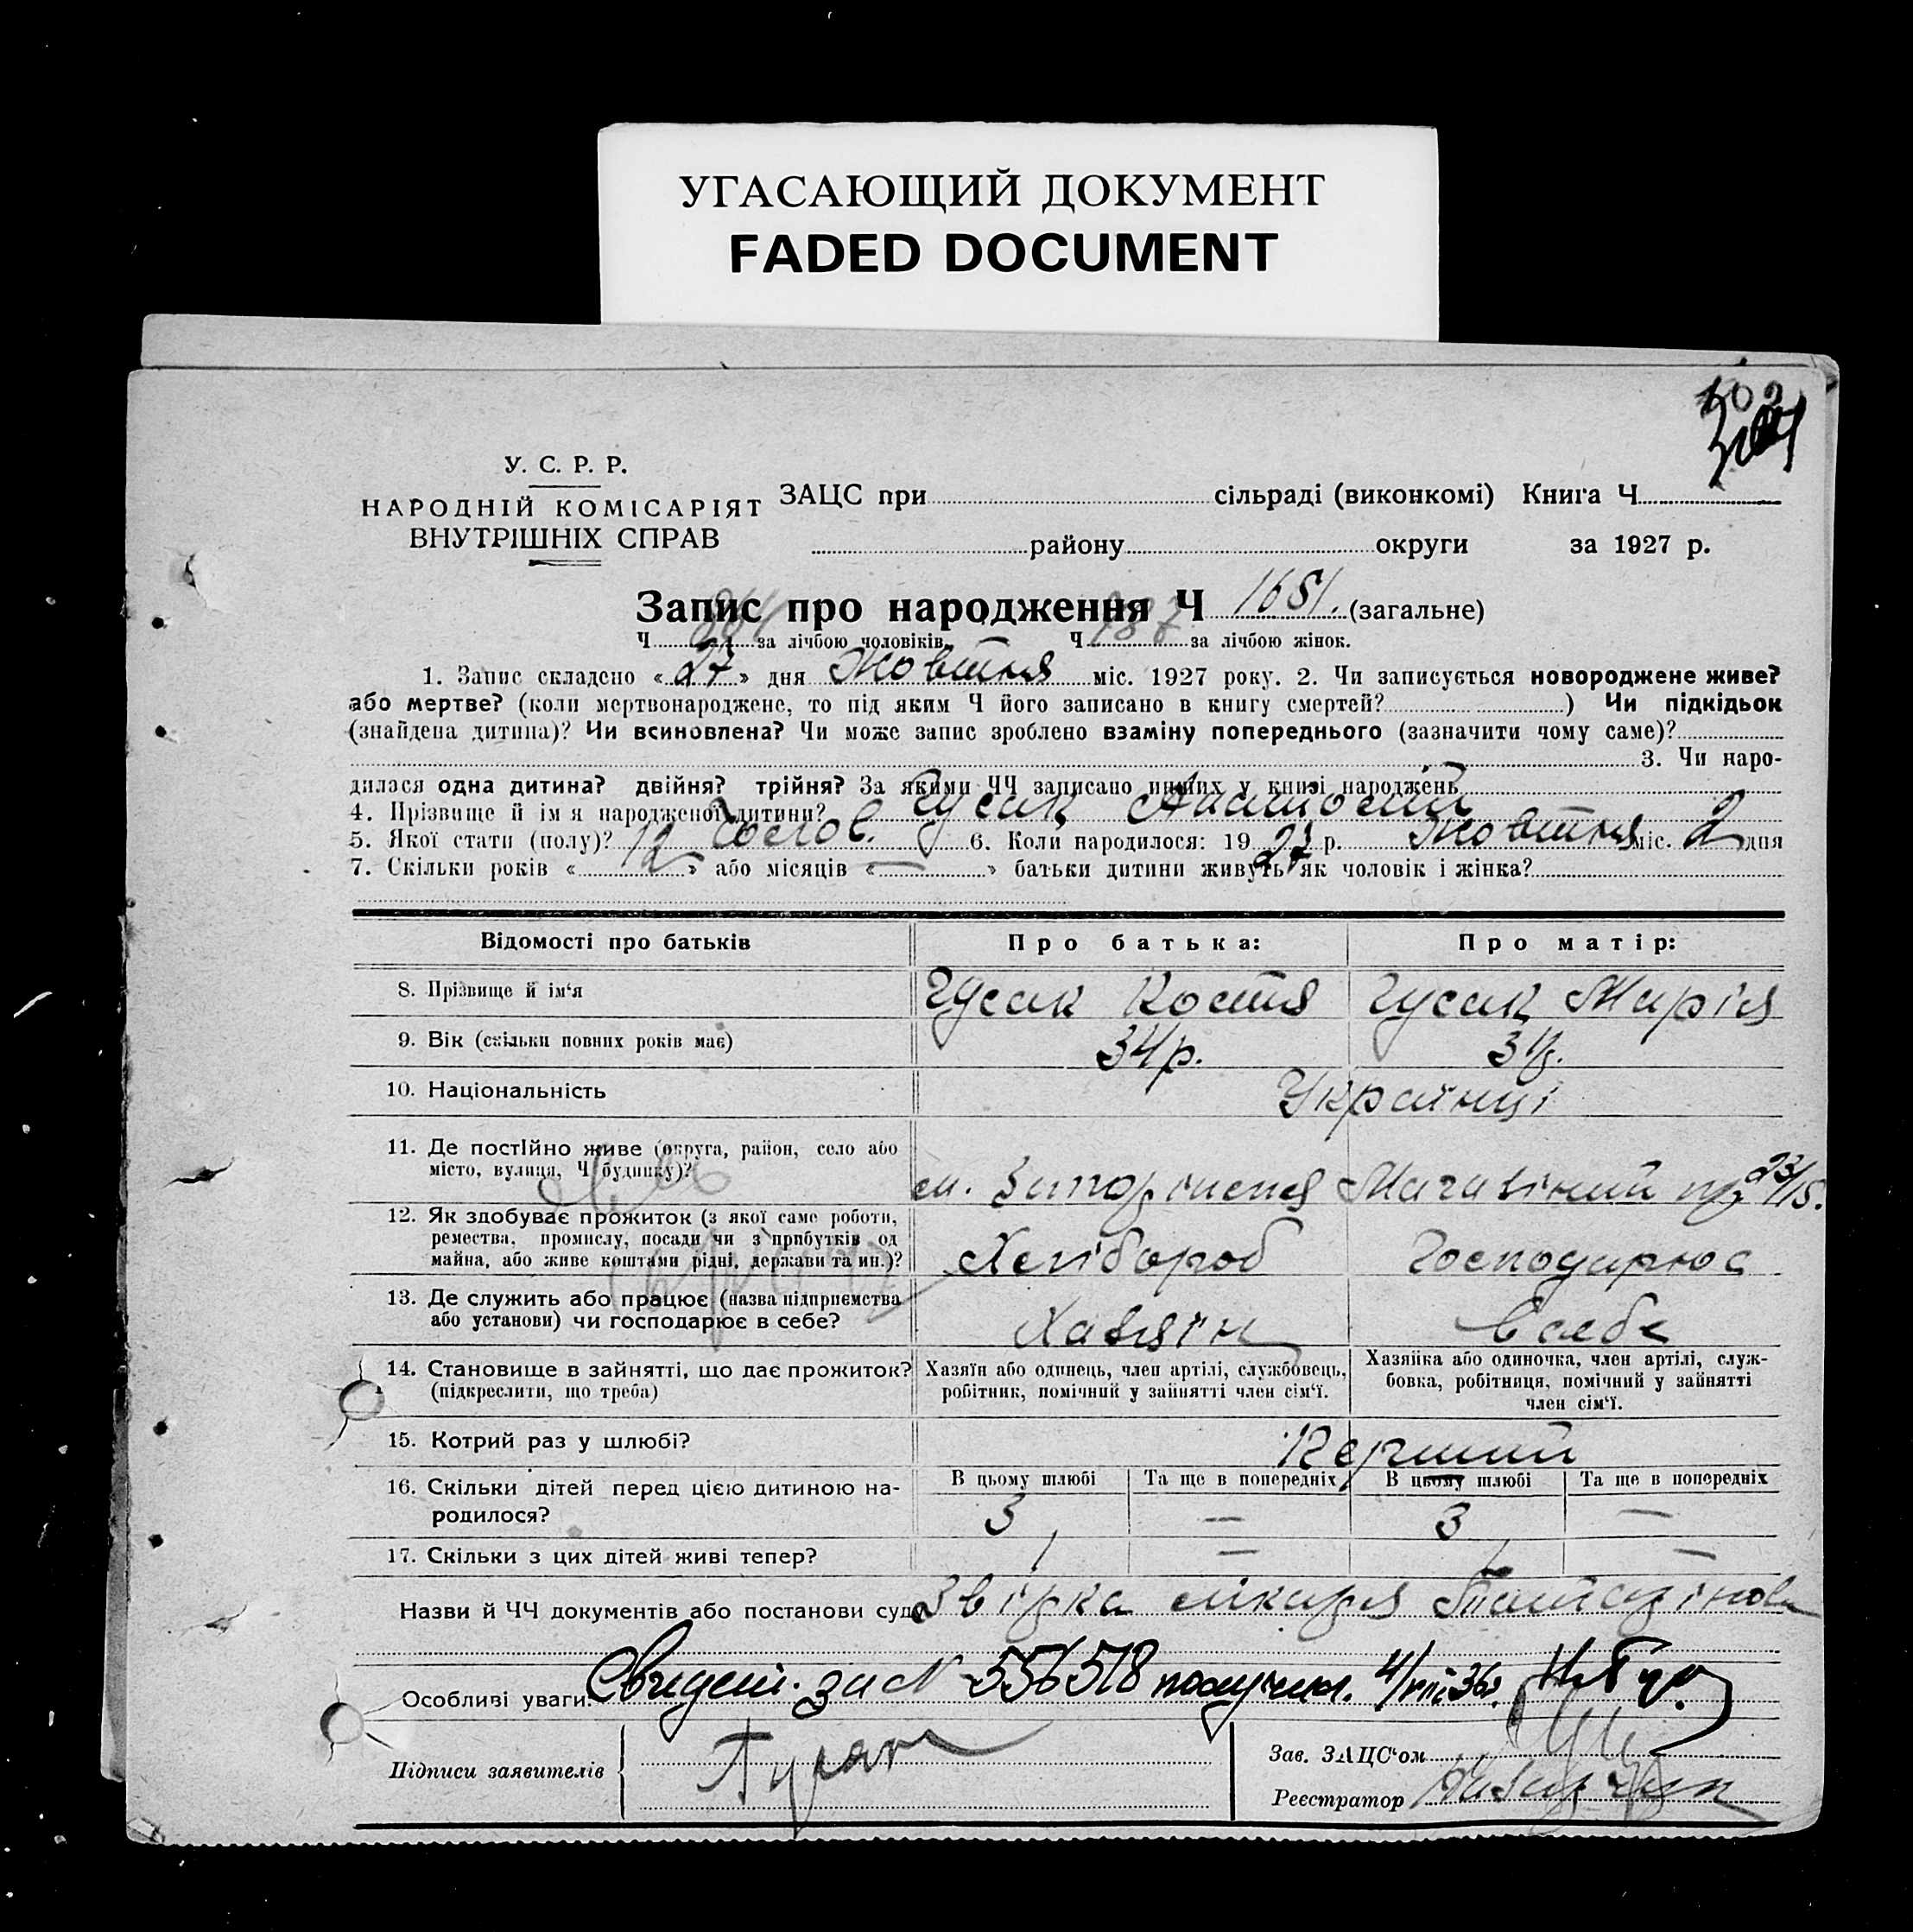 УГАСАЮЩИЙ ДОКУМЕНТ
FADED DOCUMENT
У. С. Р. Р.
НАРОДНІЙ КОМІСАРІЯТ
ВНУТРІШНІХ СПРАВ
ЗАЦС при сільраді (виконкомі) Книга Ч
району округи за 1927 р.
Запис про народження Ч 1651. (загальне)
Ч за лічбою чоловіків. Ч 787 за лічбою жінок.
1. Запис складено « 27 » дня Жовтня міс. 1927 року. 2. Чи записується новороджене живе?
або мертве? (коли мертвонароджене, то під яким Ч його записано в книгу смертей? ) Чи підкідьок
(знайдена дитина)? Чи всиновлена? Чи може запис зроблено взаміну попереднього (зазначити чому саме)?
3. Чи наро-
дилася одна дитина? двійня? трійня? За якими ЧЧ записано инших у книзі народжень
4. Прізвище й ім я народженої дитини? Гусак Анатолій
5. Якої стати (полу)? Чолов. 6. Коли народилося: 19 27 р. Жовтня міс. 2 дня
7. Скільки років « 12 » або місяців « — » батьки дитини живуть як чоловік і жінка?
Відомості про батьків Про батька: Про матір:
8. Прізвище й ім‘я Гусак Костя Гусак Марія
9. Вік (скільки повних років має) 34 р. 31 р.
10. Національність Українці
11. Де постійно живе (округа, район, село або
місто, вулиця, Ч будинку)? м. Запоріжжя 23/15.
12. Як здобуває прожиток (з якої саме роботи,
ремества, промислу, посади чи з прибутків од
майна, або живе коштами рідні, держави та ин.)? Хлібороб Господарює
13. Де служить або працює (назва підприємства
або установи) чи господарює в себе? Хазяїн в себе
14. Становище в зайнятті, що дає прожиток?
(підкреслити, що треба)
Хазяїн або одинець, член артілі, службовець,
робітник, помічний у зайнятті член сім‘ї.
Хазяйка або одиночка, член артілі, служ-
бовка, робітниця, помічний у зайнятті
член сім‘ї.
15. Котрий раз у шлюбі? Перший
В цьому шлюбі Та ще в попередніх В цьому шлюбі Та ще в попередніх
16. Скільки дітей перед цією дитиною на-
родилося? 3 — 3 —
17. Скільки з цих дітей живі тепер? 1 — 1 —
Назви й ЧЧ документів або постанови суду Звірка лікаря
Особливі уваги: Свидет. за N 556518 получил. 4/VIII 36.
Підписи заявителів
Зав. ЗАЦС‘ом
Реєстратор